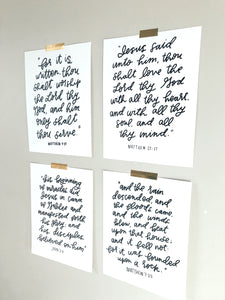 "for it is
written, thou
shalt worship
the Lord thy
God, and him
only shalt
thou serve."
MATTHEW 4:10
"Jesus said
unto him, thou
shalt love the
Lord thy God
with all thy heart,
and with all thy
soul, and all
thy mind."
MATTHEW 22:37
"this beginning
of miracles did
Jesus in cana
of Galilee and
manifested forth
his glory and
his disciples
believed on him"
"and the rain
descended, and
the floods came,
and the winds
blew, and beat
upon that house;
and it fell not:
for it was founded
upon a rock."
MATTHEW 7:25